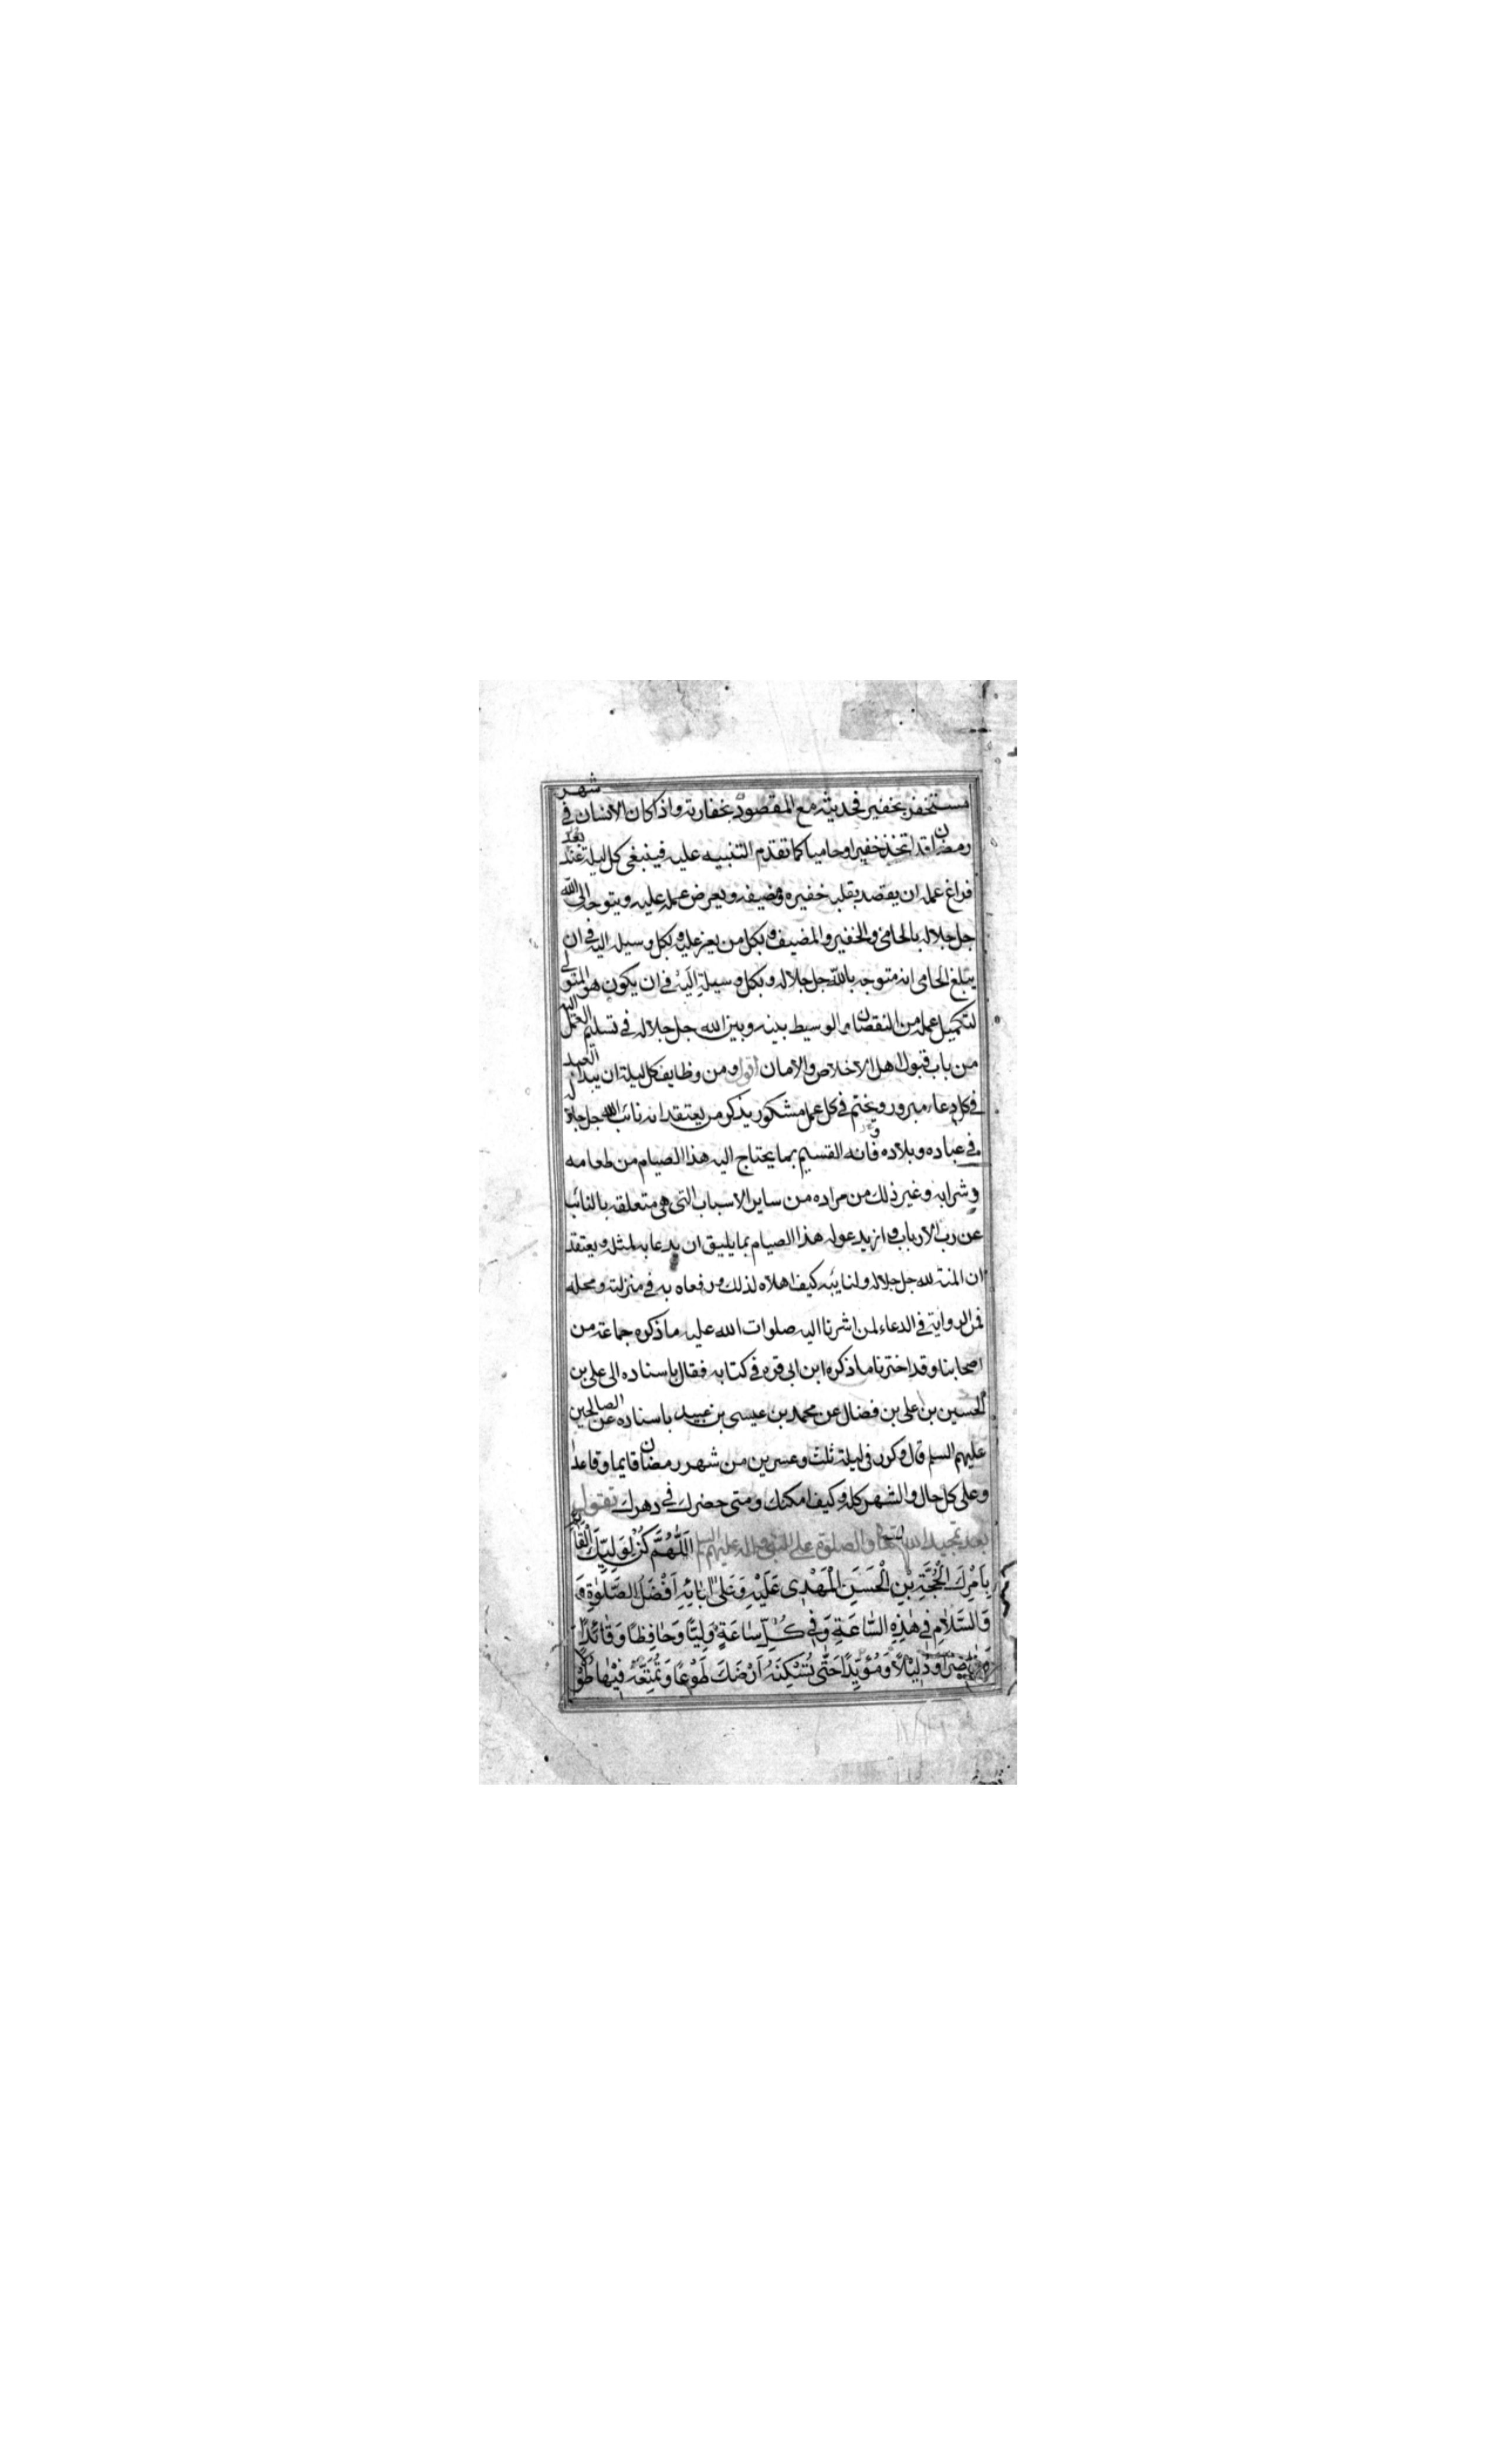 مستخفر بخفير في حديثه مع المقصود بخفارته واذا كان الانسان في شهر
رمضان قد اتخذ خفيرا وحاميا كما تقدم التنبيه عليه فينبغى كل ليلة عند بعد
فراغ عمله ان يقصد بقلبه خفيره ومضيفه ويعرض عمله عليه ويتوجه الى الله
جل جلاله بالحامى والخفير والمضيف وبكل من يعز عليه وبكل وسيله اليه في ان
يبلغ الحامى انه متوجه بالله جل جلاله وبكل وسيلةٍ اليه في ان يكون هو المتولى
لتكميل عمله من النقصان والوسيط بينه وبين الله جل جلاله في تسليم العمل اليه
من باب قبول اهل الاخلاص والامان اقول ومن وظايف كل ليلة ان يبدأ العبد
في كل دعاء مبرور ويختم في كل عمل مشكور بذكر من يعتقد انه نائب الله جل جلاله
في عباده وبلاده وفانه القسيم بما يحتاج اليه هذا الصيام من طعامه
وشرابه وغير ذلك من مراده من ساير الاسباب التى هى متعلقه بالنائب
عن رب الارباب وان يدعو له هذا الصيام بما يليق ان يدعا به لمثله ويعتقد
ان المنة لله جل جلاله ولنايبه كيف اهلاه لذلك ورفعاه به في منزلته ومحله
فمن الرواية في الدعاء لمن اشرنا اليه صلوات الله عليه ما ذكره جماعة من
اصحابنا وقد اخترنا ما ذكره ابن ابى قره في كتابه فقال باسناده الى على بن
الحسين بن على بن فضال عن محمد بن عيسى بن عبيد باسناده عن الصالحين
عليهم السلم قال وكرر في ليلة ثلث وعشرين من شهر رمضان قايما وقاعدا
وعلى كل حال والشهر كله وكيف امكنك ومتى حضرك في دهرك تقول
بعد تمجيد الله تعا والصلوة على النبى واله عليهم السلم اَللّٰهُمَّ كُنْ لِوَلِيِّكَ الْقَائم
بِاَمْرِكَ الْحُجَّةِ بْنِ الْحَسَنِ الْمَهْدِى عَلَيْهِ وَعَلىٰ اٰبَائِهِ اَفْضَلُ الصَّلٰوةِ وَ
وَالسَّلَامِ فِى هٰذِهِ السَّاعَةِ وَفِى كُلِّ سٰاعَةٍ وَلِيًّا وَحٰافِظًا وَقٰائِدًا
وَنٰاصِرًا وَدَلِيْلًا وَمُؤَيِّدًا حَتّٰى تُسْكِنَهُ اَرْضَكَ طَوْعًا وَتُمَتِّعَهُ فِيْهٰا طُوْ